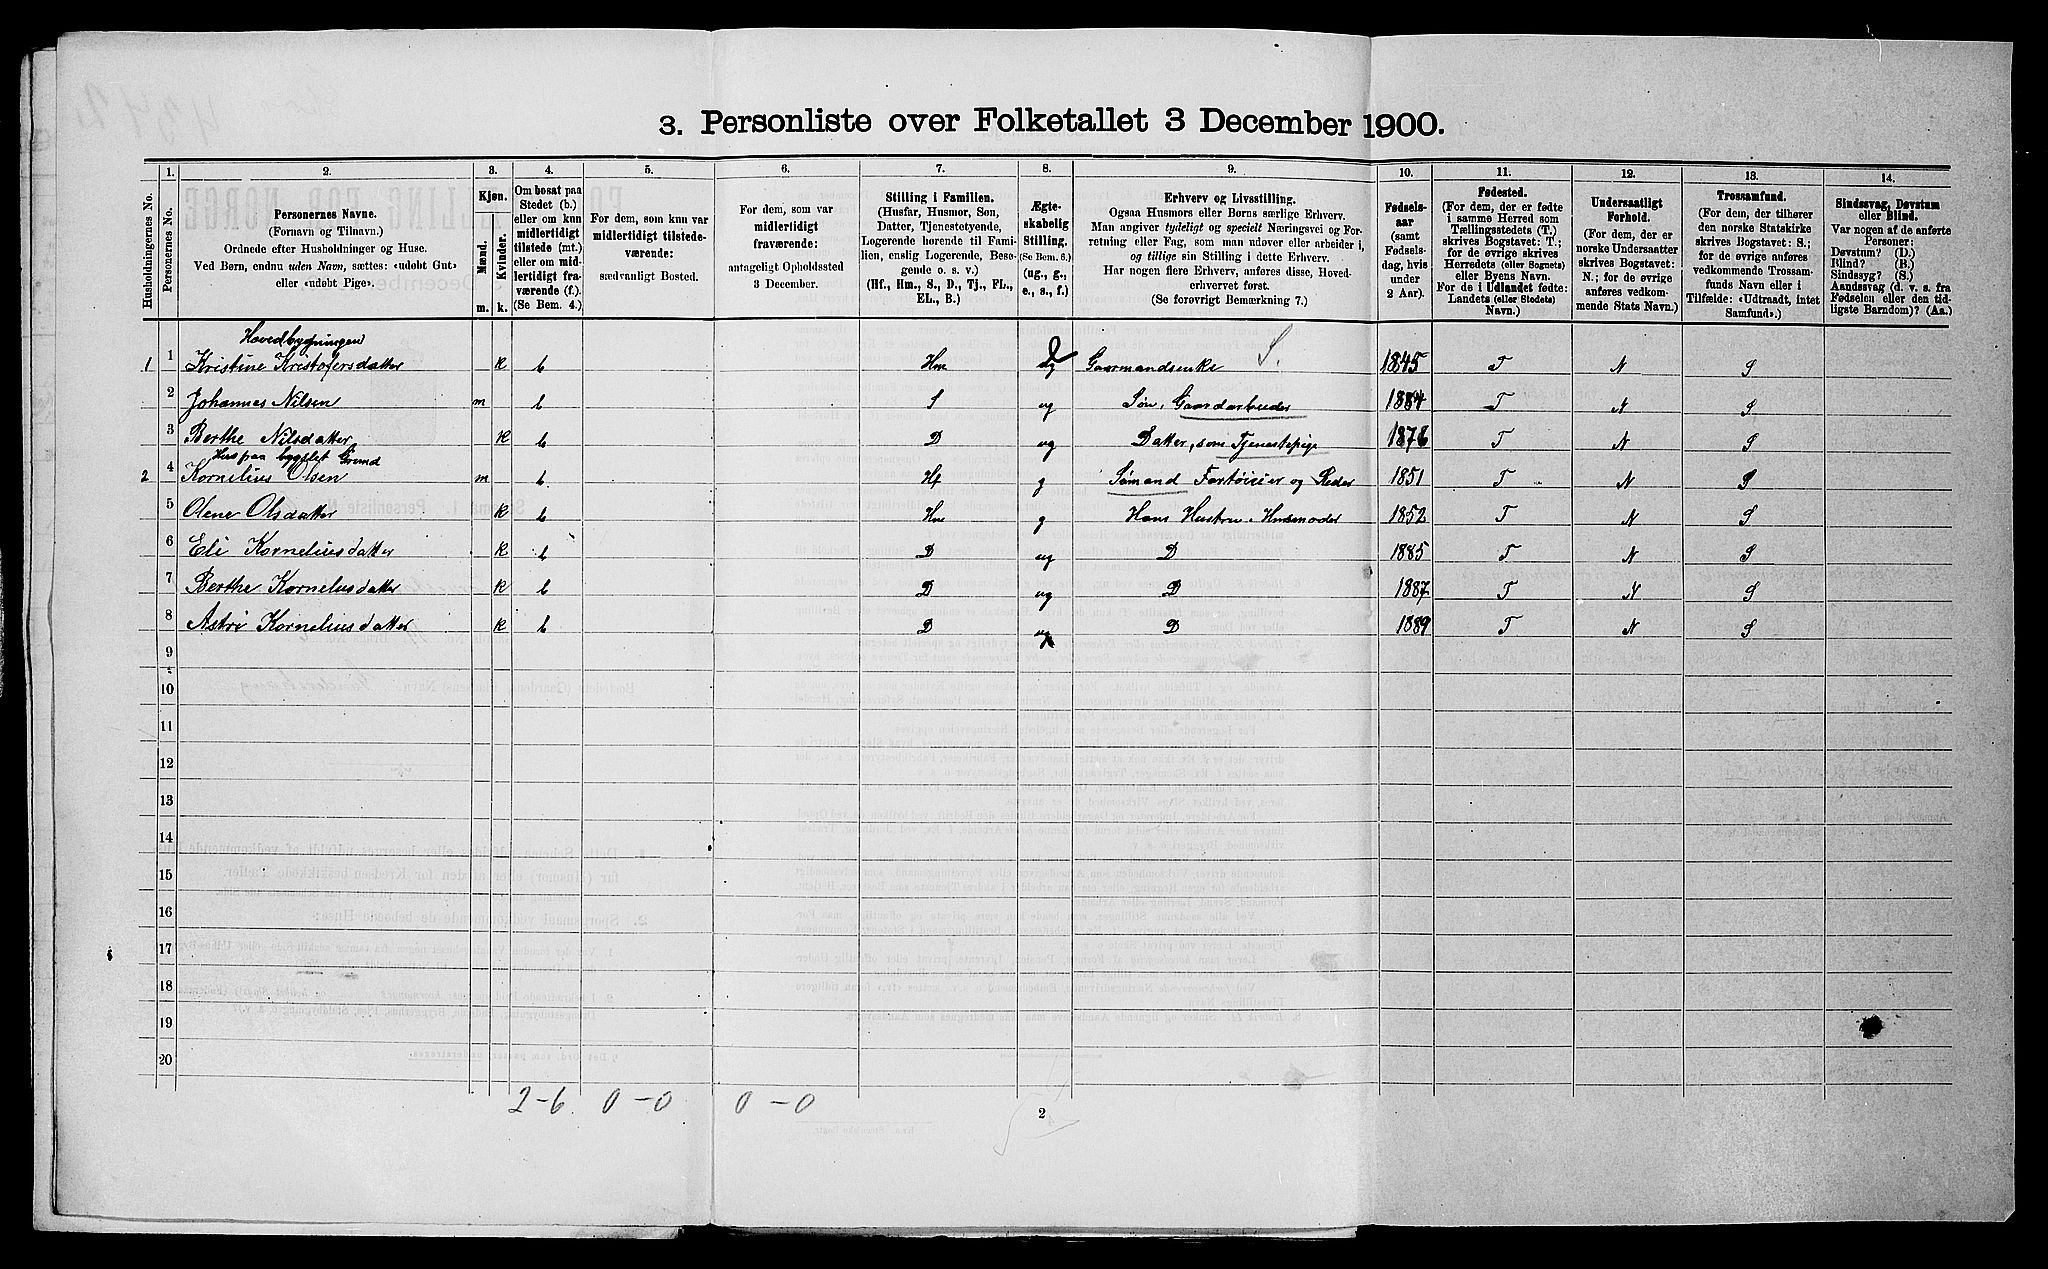 3. Personliste over Folketallet 3 December 1900.
Husholdningernes No.
1. Personernes No.
2. Personernes Navne. (Fornavn og Tilnavn.) Ordnede efter Husholdninger og Huse. Ved Børn, endnu uden Navn, sættes: «udøbt Gut» eller «udøbt Pige».
3. Kjøn. Mænd. m. Kvinder. k.
4. Om bosat paa Stedet (b.) eller om kun midlertidigt tilstede (mt.) eller om midlertidigt fraværende (f.) (Se Bem. 4.)
5. For dem, som kun var midlertidigt tilstedeværende: sædvanligt Bosted.
6. For dem, som var midlertidigt fraværende: antageligt Opholdssted 3 December.
7. Stilling i Familien. (Husfar, Husmor, Søn, Datter, Tjenestetyende, Logerende hørende til Familien, enslig Logerende, Besøgende o. s. v.) (Hf., Hm., S., D., Tj., FL., EL., B.)
8. Ægteskabelig Stilling. (Se Bem. 6.) (ug., g., e., s., f.)
9. Erhverv og Livsstilling. Ogsaa Husmors eller Børns særlige Erhverv. Man angiver tydeligt og specielt Næringsvei og Forretning eller Fag, som man udøver eller arbeider i, og tillige sin Stilling i dette Erhverv. Har nogen flere Erhverv, anføres disse, Hovederhvervet først. (Se forøvrigt Bemærkning 7.)
10. Fødselsaar (samt Fødselsdag, hvis under 2 Aar).
11. Fødested. (For dem, der er fødte i samme Herred som Tællingsstedets (T.) skrives Bogstavet: T.; for de øvrige skrives Herredets (eller Sognets) eller Byens Navn. For de i Udlandet fødte: Landets (eller Stedets) Navn.)
12. Undersaatligt Forhold. (For dem, der er norske Undersaatter skrives Bogstavet: N.; for de øvrige anføres vedkommende Stats Navn.)
13. Trossamfund. (For dem, der tilhører den norske Statskirke skrives Bogstavet: S.; for de øvrige anføres vedkommende Trossamfunds Navn eller i Tilfælde: «Udtraadt, intet Samfund».)
14. Sindssvag, Døvstum eller Blind. Var nogen af de anførte Personer: Døvstum? (D.) Blind? (B.) Sindssyg? (S.) Aandssvag (d. v. s. fra Fødselen eller den tidligste Barndom)? (Aa.)
Hovedbygningen
1 1 Kristine Kristofersdatter k b Hm Gaarmandsenke S. 1845 T N S
2 Johannes Nilsen m b S ug Søn, Gaardarbeider 1884 T N S
3 Berthe Nilsdatter k b D ug Datter, som Tjenestepige 1876 T N S
Hus paa bygslet Grund
2 4 Kornelius Olsen m b Hf g Sømand Fortøirier og Reder 1851 T N S
5 Olene Olsdatter k b Hm g Hans Hustru. Husmoder 1852 T N S
6 Eli Korneliusdatter k b D ug D 1885 T N S
7 Berthe Korneliusdatter k b D ug D 1887 T N S
8 Astri Korneliusdatter k b D ug D 1889 T N S
9
10
11
12
13
14
15
16
17
18
19
20
2-6 0-0 0-0
2